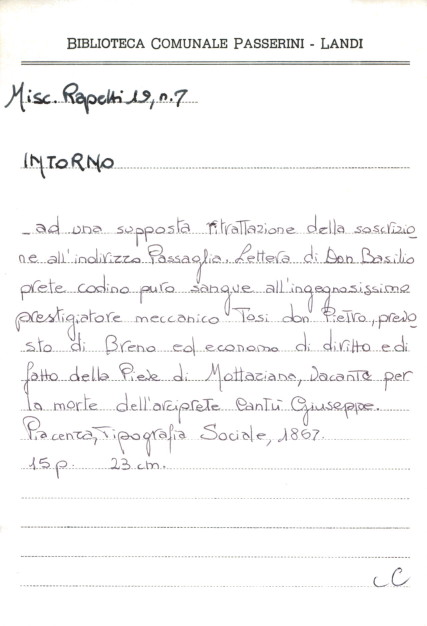 BIBLIOTECA COMUNALE PASSERINI - LANDI
Misc. Rapetti 19, n. 7
INTORNO
- ad una supposta ritrattazione della soscrizio
ne all'indirizzo Passaglia. Lettera di Don Basilio
prete codino puro sangue all'ingegnosissimo
prestigiatore meccanico Tosi don Pietro, prevo
sto di Breno ed economo di diritto e di
fatto della Pieve di Mottaziana, vacante per
la morte dell'arciprete Cantù Giuseppe.
Piacenza, Tipografia Sociale, 1867.
15 p. 23 cm.